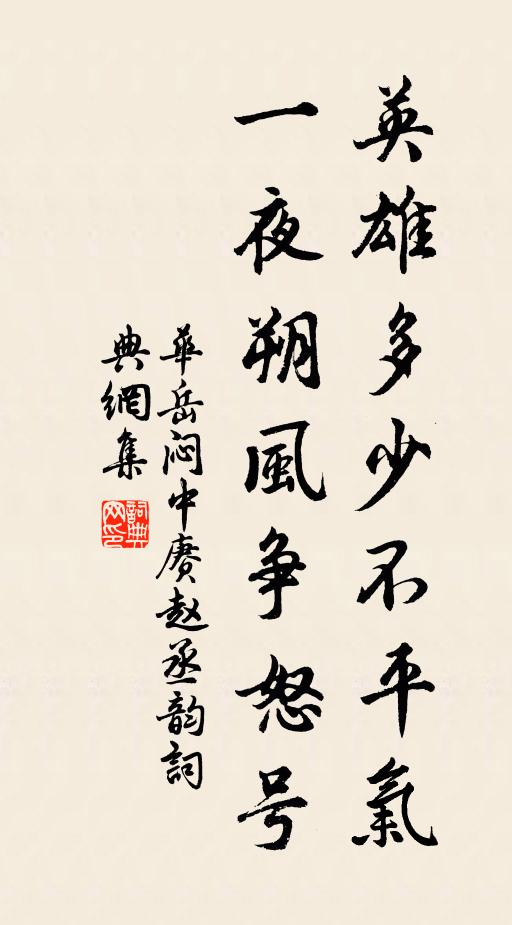 英雄多少不平氣
一夜朔風争怒号
華岳闷中賡赵丞韵詞
典網集
詞典
网印